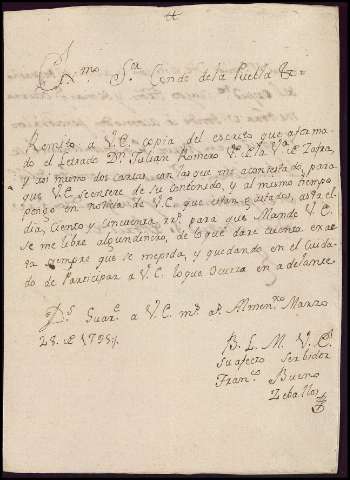 Ex.mo S.or Conde de la Puebla &.a
Remito a V.E. copia del escrito que a forma-
do el Letrado D.n Julian Romero V.no de la V.a de Zafra,
y asi mismo dos cartas con las que me a contestado, para
que V.E. se entere de su Contenido, y al mismo tiempo
pongo en noticia de V.E. que estan gastados, asta el
dia, Ciento y cincuenta r.s para que Mande V.E.
se me libre algun dinero, de lo que dare cuenta exac-
ta siempre que se me pida, y quedando en el Cuida-
do de Participar a V.E. lo que Ocurra en adelante.
D.s Guar.e a V.E. m.s a.s Almen.o Marzo
28. de
B. L. M. V. E.
Su afecto Serbidor
Fran.co Bueno
Zeballos